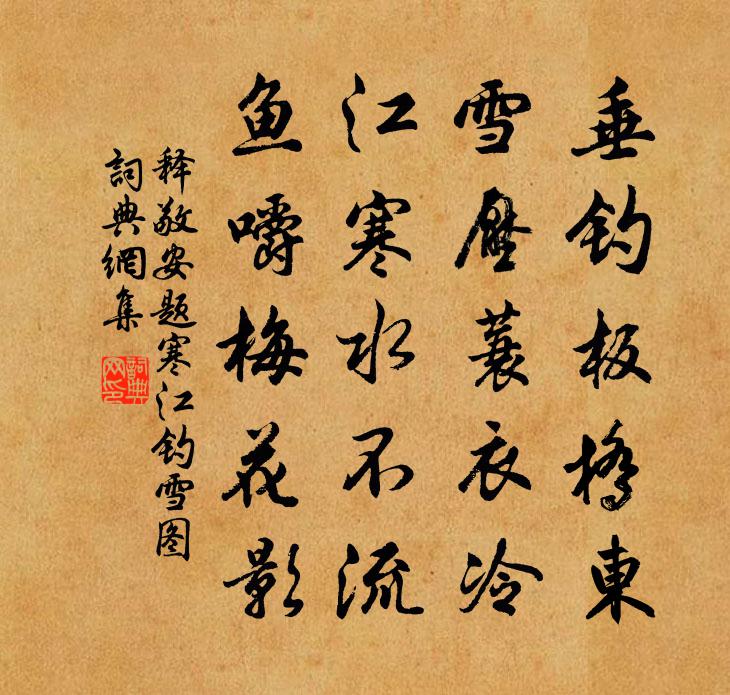 垂钓板橋東
雪壓蓑衣冷
江寒水不流
鱼嚼梅花影
释敬安题寒江钓雪图
詞典網集
詞典
网印